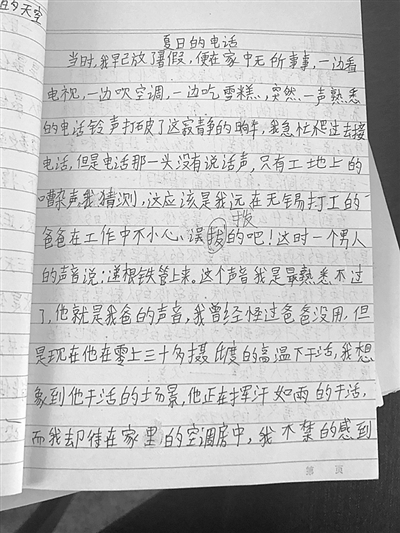 的天空
夏日的电话
当时,我早已放了暑假,便在家中无所事事,一边看
电视,一边吹空调,一边吃雪糕,突然一声熟悉
的电话铃声打破了这寂静的晌午,我急忙爬过去接
电话,但是电话那一头没有说话声,只有工地上的
嘈杂声,我猜测,这应该是我远在无锡打工的
拨
爸爸在工作中不小心误拔的吧!这时一个男人
的声音说:递根铁管上来。这个声音我是最熟悉不过
了,他就是我爸的声音,我曾经怪过爸爸没用,但
是现在他在零上三十多摄氏度的高温下干活,我想
象到他干活的场景,他正在挥汗如雨的干活,
而我却待在家里的空调房中,我不禁的感到
第 页